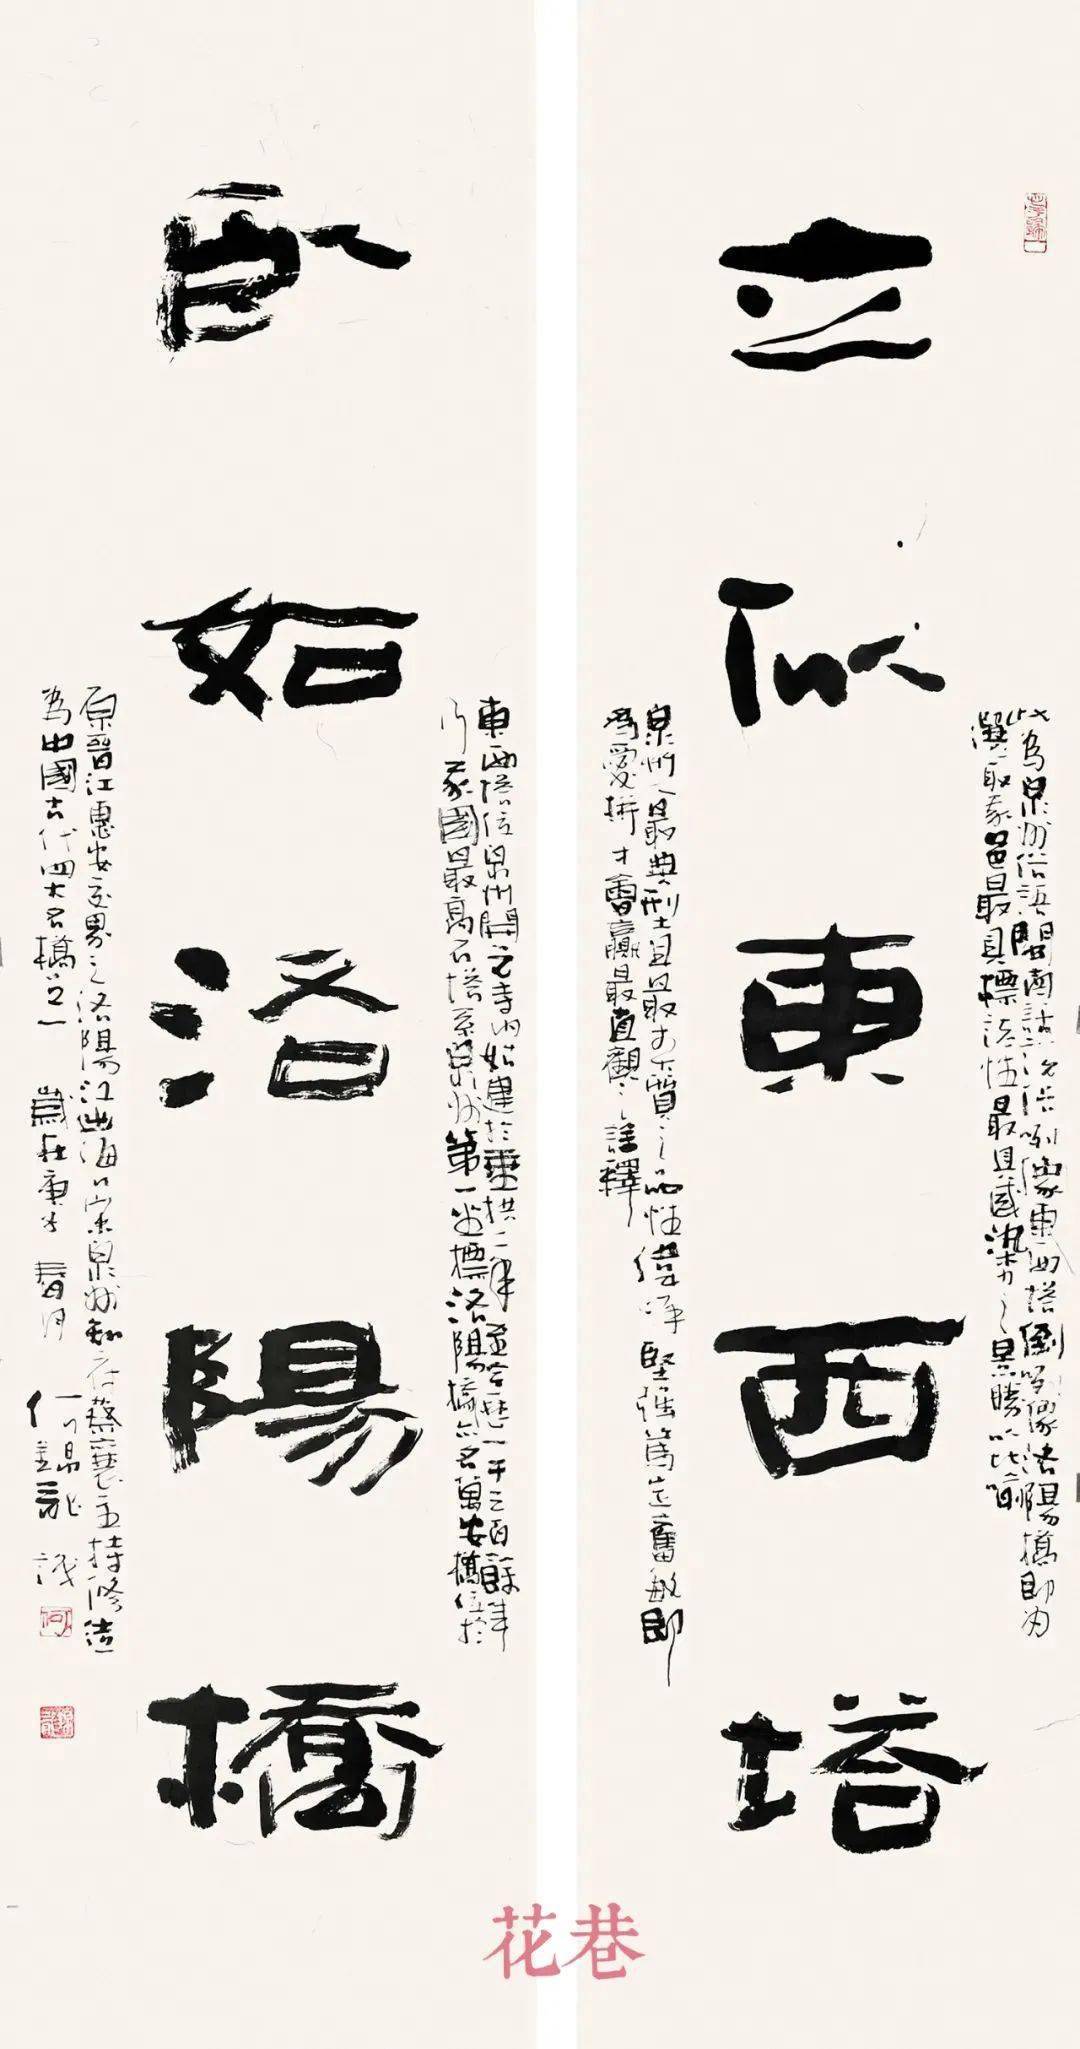 立似東西塔
為泉州俗語閩南話 咧像東西塔倒咧像洛陽橋即为
選取 邑最具標誌性最具感染力之景勝以比喻
泉州人最典型且最本質之品性偉岸堅強篤定奮敏即
為愛拼才會贏最直觀之詮釋
臥如洛陽橋
東西塔位泉州開元寺内始建於垂拱二年 今歷一千三百餘年
乃我國最高石塔系泉州第一坐標洛陽橋亦名萬安橋位於
原晉江惠安交界之洛陽江出海口宋泉州知府蔡襄主持修造
為中國古代四大名橋之一 歲在庚子春月
龍 識
花巷